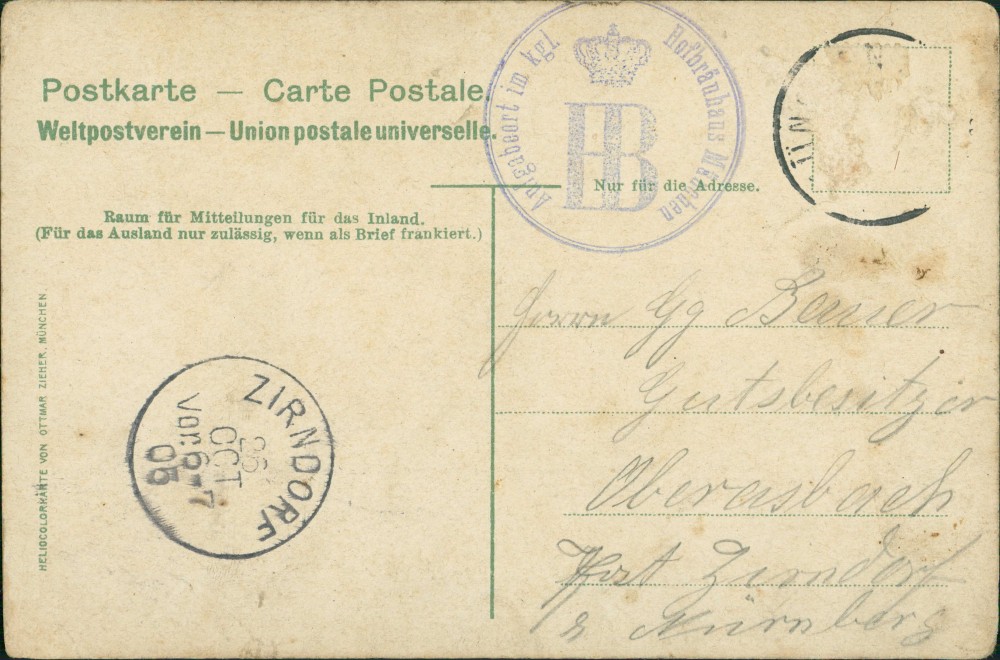 Postkarte — Carte Postale.
Weltpostverein — Union postale universelle.
Aufgabeort im kgl. Hofbräuhaus München
HB
Nur für die Adresse.
Raum für Mitteilungen für das Inland.
(Für das Ausland nur zulässig, wenn als Brief frankiert.)
HELIOCOLORKARTE VON OTTMAR ZIEHER, MÜNCHEN.
ZIRNDORF
26
OCT
Vor. 6-7
05
Herrn Gg Bauer
Gutsbesitzer
Oberasbach
Post Zirndorf
Nürnberg